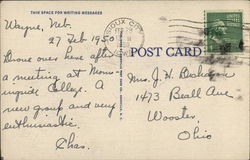 THIS SPACE FOR WRITING MESSAGES
Wayne, Neb.
27 Feb 1950
Drove over here after
a meeting at Morn-
ingside College. A
new group and very
enthusiastic.
Chas.
SIOUX CITY
POST CARD
Mrs. J. H.
1473 Beall Ave
Wooster,
Ohio